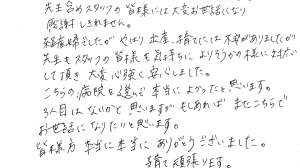 先生含めスタッフの皆様には大変お世話になり
感謝しきれません。
経産婦でしたが やはり出産、子育てには不安がありましたが
先生もスタッフの皆様も気持ちによりそうかの様に対応
して頂き 大変心強く安心しました。
こちらの病院を選んで本当によかったと思います。
3人目はないかと思いますが もしあれば またこちらで
お世話になりたいと思います。
皆様方 本当に本当に ありがとうございました。
子育て頑張ります。